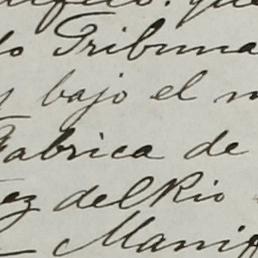 Tribuna
bajo el
Fabrica de
ez del Rio
Manif